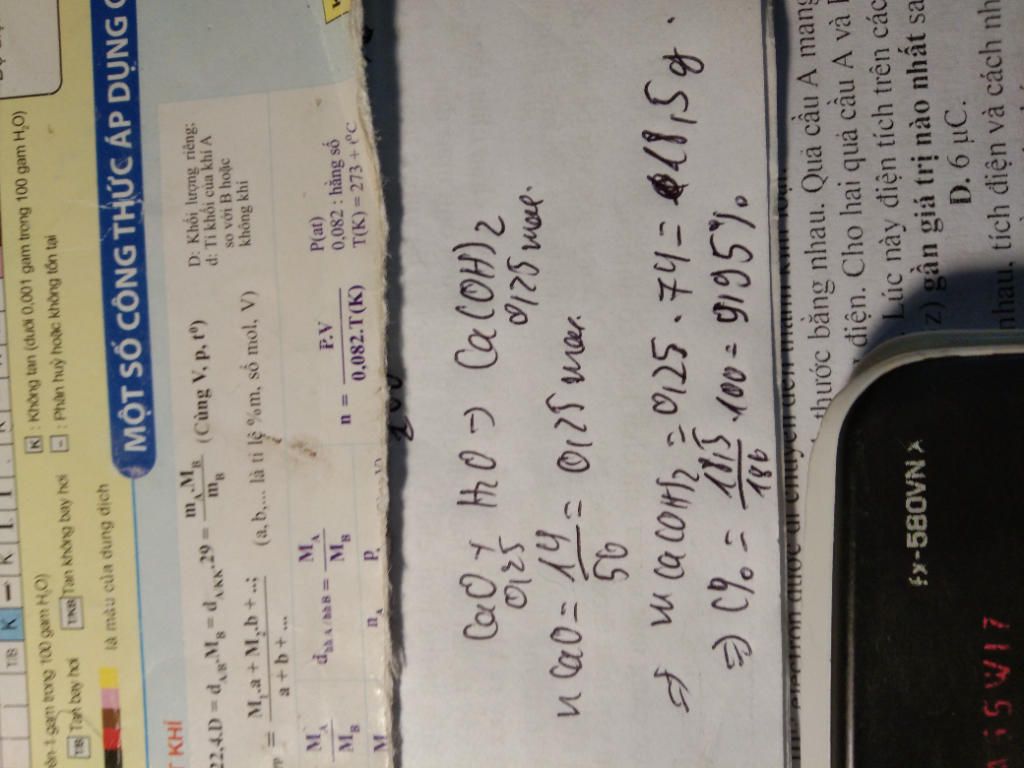 T/B K – K I I . K I
ên 1 gam trong 100 gam H₂O) K : Không tan (dưới 0,001 gam trong 100 gam H₂O)
T/B Tan bay hơi T/KB Tan không bay hơi - : Phân huỷ hoặc không tồn tại
là màu của dung dịch
MỘT SỐ CÔNG THỨC ÁP DỤNG
T KHÍ
22,4.D = d_AB.M_B = d_AKK.29 = m_A.M_B / m_B (Cùng V, p, t⁰)
D: Khối lượng riêng;
d: Tỉ khối của khí A
so với B hoặc
không khí
= M₁.a + M₂.b + ...; / a + b + ... (a, b,... là tỉ lệ %m, số mol, V)
M_A / M_B d_hhA/hhB = M_A / M_B n = P.V / 0,082.T(K)
P(at)
0,082 : hằng số
T(K) = 273 + t⁰C
CaO + H2O → Ca(OH)2
0,25 0,25 mol.
nCaO = 14/56 = 0,25 mol.
⇒ mCa(OH)2 = 0,25 . 74 = 18,5g.
⇒ C% = 18,5/186 . 100 = 9,95%
thước bằng nhau. Quả cầu A mang
Lúc này điện tích trên các
điện. Cho hai quả cầu A và
z) gần giá trị nào nhất sa
D. 6 μC.
nhau, tích điện và cách nh
fx-580VN X